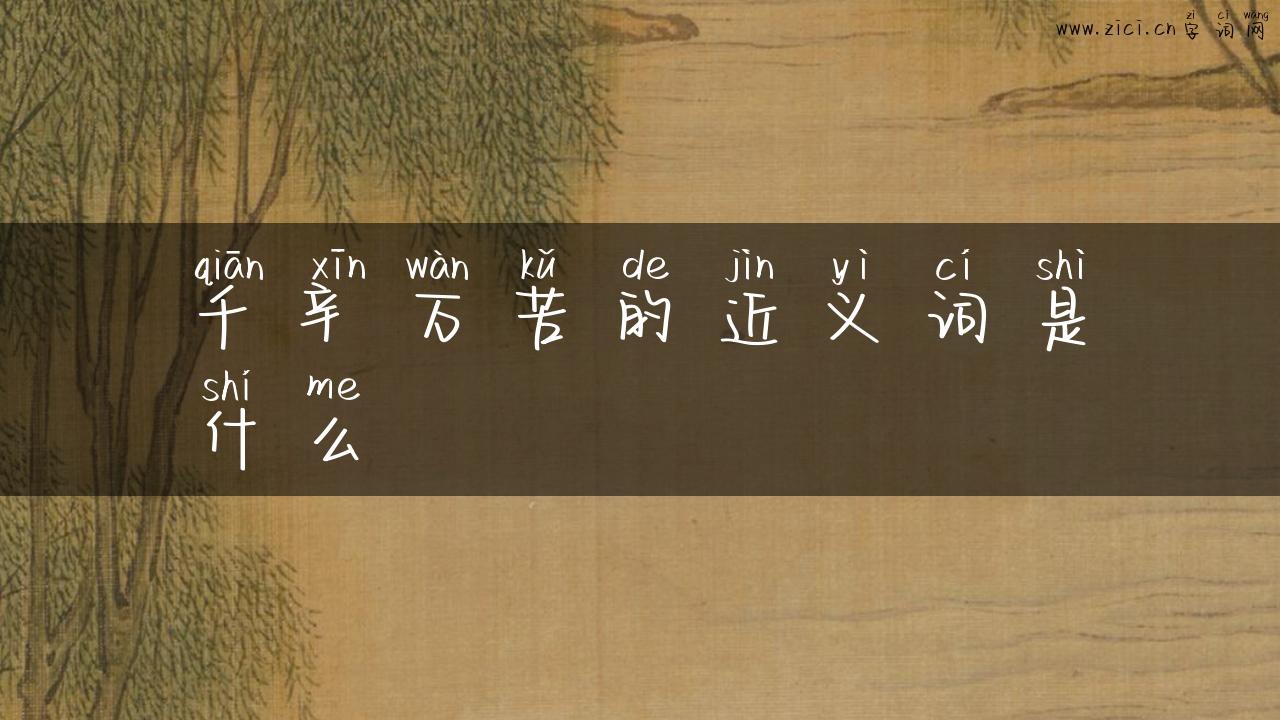 zì cí wǎng
www.zici.cn 字 词 网
qiān xīn wàn kǔ de jìn yì cí shì
千 辛 万 苦 的 近 义 词 是
shí me
什 么